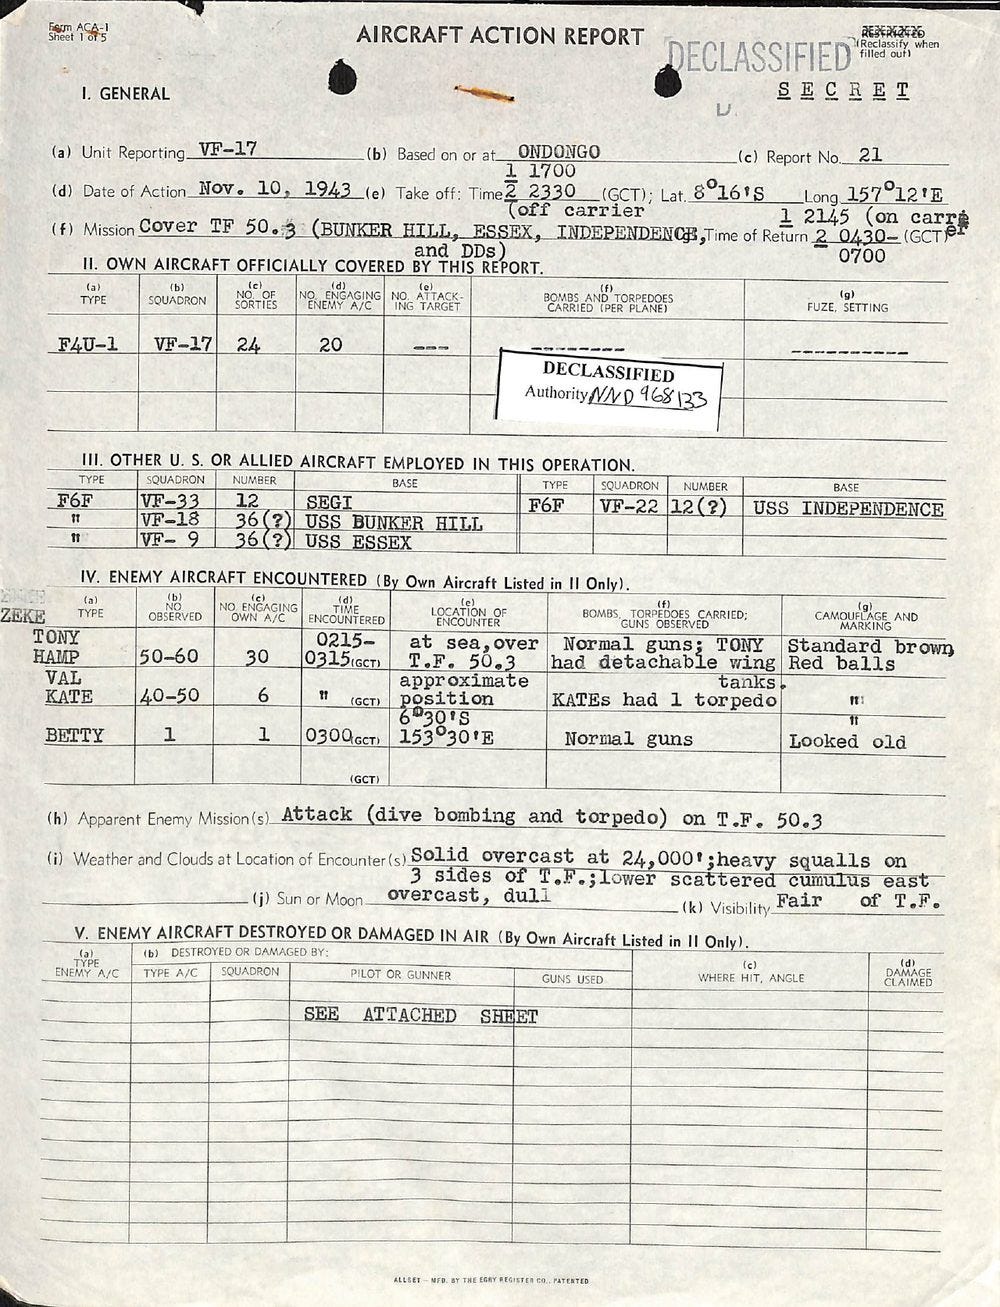 Form ACA-1
Sheet 1 of 5
AIRCRAFT ACTION REPORT
RESTRICTED
(Reclassify when
filled out)
DECLASSIFIED
S E C R E T
I. GENERAL
(a) Unit Reporting VF-17 (b) Based on or at ONDONGO (c) Report No. 21
1 1700
(d) Date of Action Nov. 10, 1943 (e) Take off: Time 2 2330 (GCT); Lat. 8°16'S Long 157°12'E
(off carrier 1 2145 (on carrier
(f) Mission Cover TF 50.3 (BUNKER HILL, ESSEX, INDEPENDENCE, Time of Return 2 0430- (GCT)
and DDs) 0700
II. OWN AIRCRAFT OFFICIALLY COVERED BY THIS REPORT.
(a) TYPE (b) SQUADRON (c) NO. OF SORTIES (d) NO. ENGAGING ENEMY A/C (e) NO. ATTACK-ING TARGET (f) BOMBS AND TORPEDOES CARRIED (PER PLANE) (g) FUZE, SETTING
F4U-1 VF-17 24 20 --- -------- ----------
DECLASSIFIED
Authority NND 968133
III. OTHER U. S. OR ALLIED AIRCRAFT EMPLOYED IN THIS OPERATION.
TYPE SQUADRON NUMBER BASE TYPE SQUADRON NUMBER BASE
F6F VF-33 12 SEGI F6F VF-22 12(?) USS INDEPENDENCE
" VF-18 36(?) USS BUNKER HILL
" VF- 9 36(?) USS ESSEX
IV. ENEMY AIRCRAFT ENCOUNTERED (By Own Aircraft Listed in II Only).
(a) TYPE (b) NO. OBSERVED (c) NO. ENGAGING OWN A/C (d) TIME ENCOUNTERED (e) LOCATION OF ENCOUNTER (f) BOMBS, TORPEDOES CARRIED; GUNS OBSERVED (g) CAMOUFLAGE AND MARKING
ZEKE
TONY 0215- at sea, over Normal guns; TONY Standard brown
HAMP 50-60 30 0315 (GCT) T.F. 50.3 had detachable wing Red balls
VAL approximate tanks.
KATE 40-50 6 " (GCT) position KATEs had 1 torpedo "
6°30'S "
BETTY 1 1 0300 (GCT) 153°30'E Normal guns Looked old
(GCT)
(h) Apparent Enemy Mission(s) Attack (dive bombing and torpedo) on T.F. 50.3
(i) Weather and Clouds at Location of Encounter(s) Solid overcast at 24,000'; heavy squalls on
3 sides of T.F.; lower scattered cumulus east
(j) Sun or Moon overcast, dull (k) Visibility Fair of T.F.
V. ENEMY AIRCRAFT DESTROYED OR DAMAGED IN AIR (By Own Aircraft Listed in II Only).
(a) TYPE ENEMY A/C (b) DESTROYED OR DAMAGED BY: (c) WHERE HIT, ANGLE (d) DAMAGE CLAIMED
TYPE A/C SQUADRON PILOT OR GUNNER GUNS USED
SEE ATTACHED SHEET
ALLSET - MFD. BY THE EGRY REGISTER CO., PATENTED